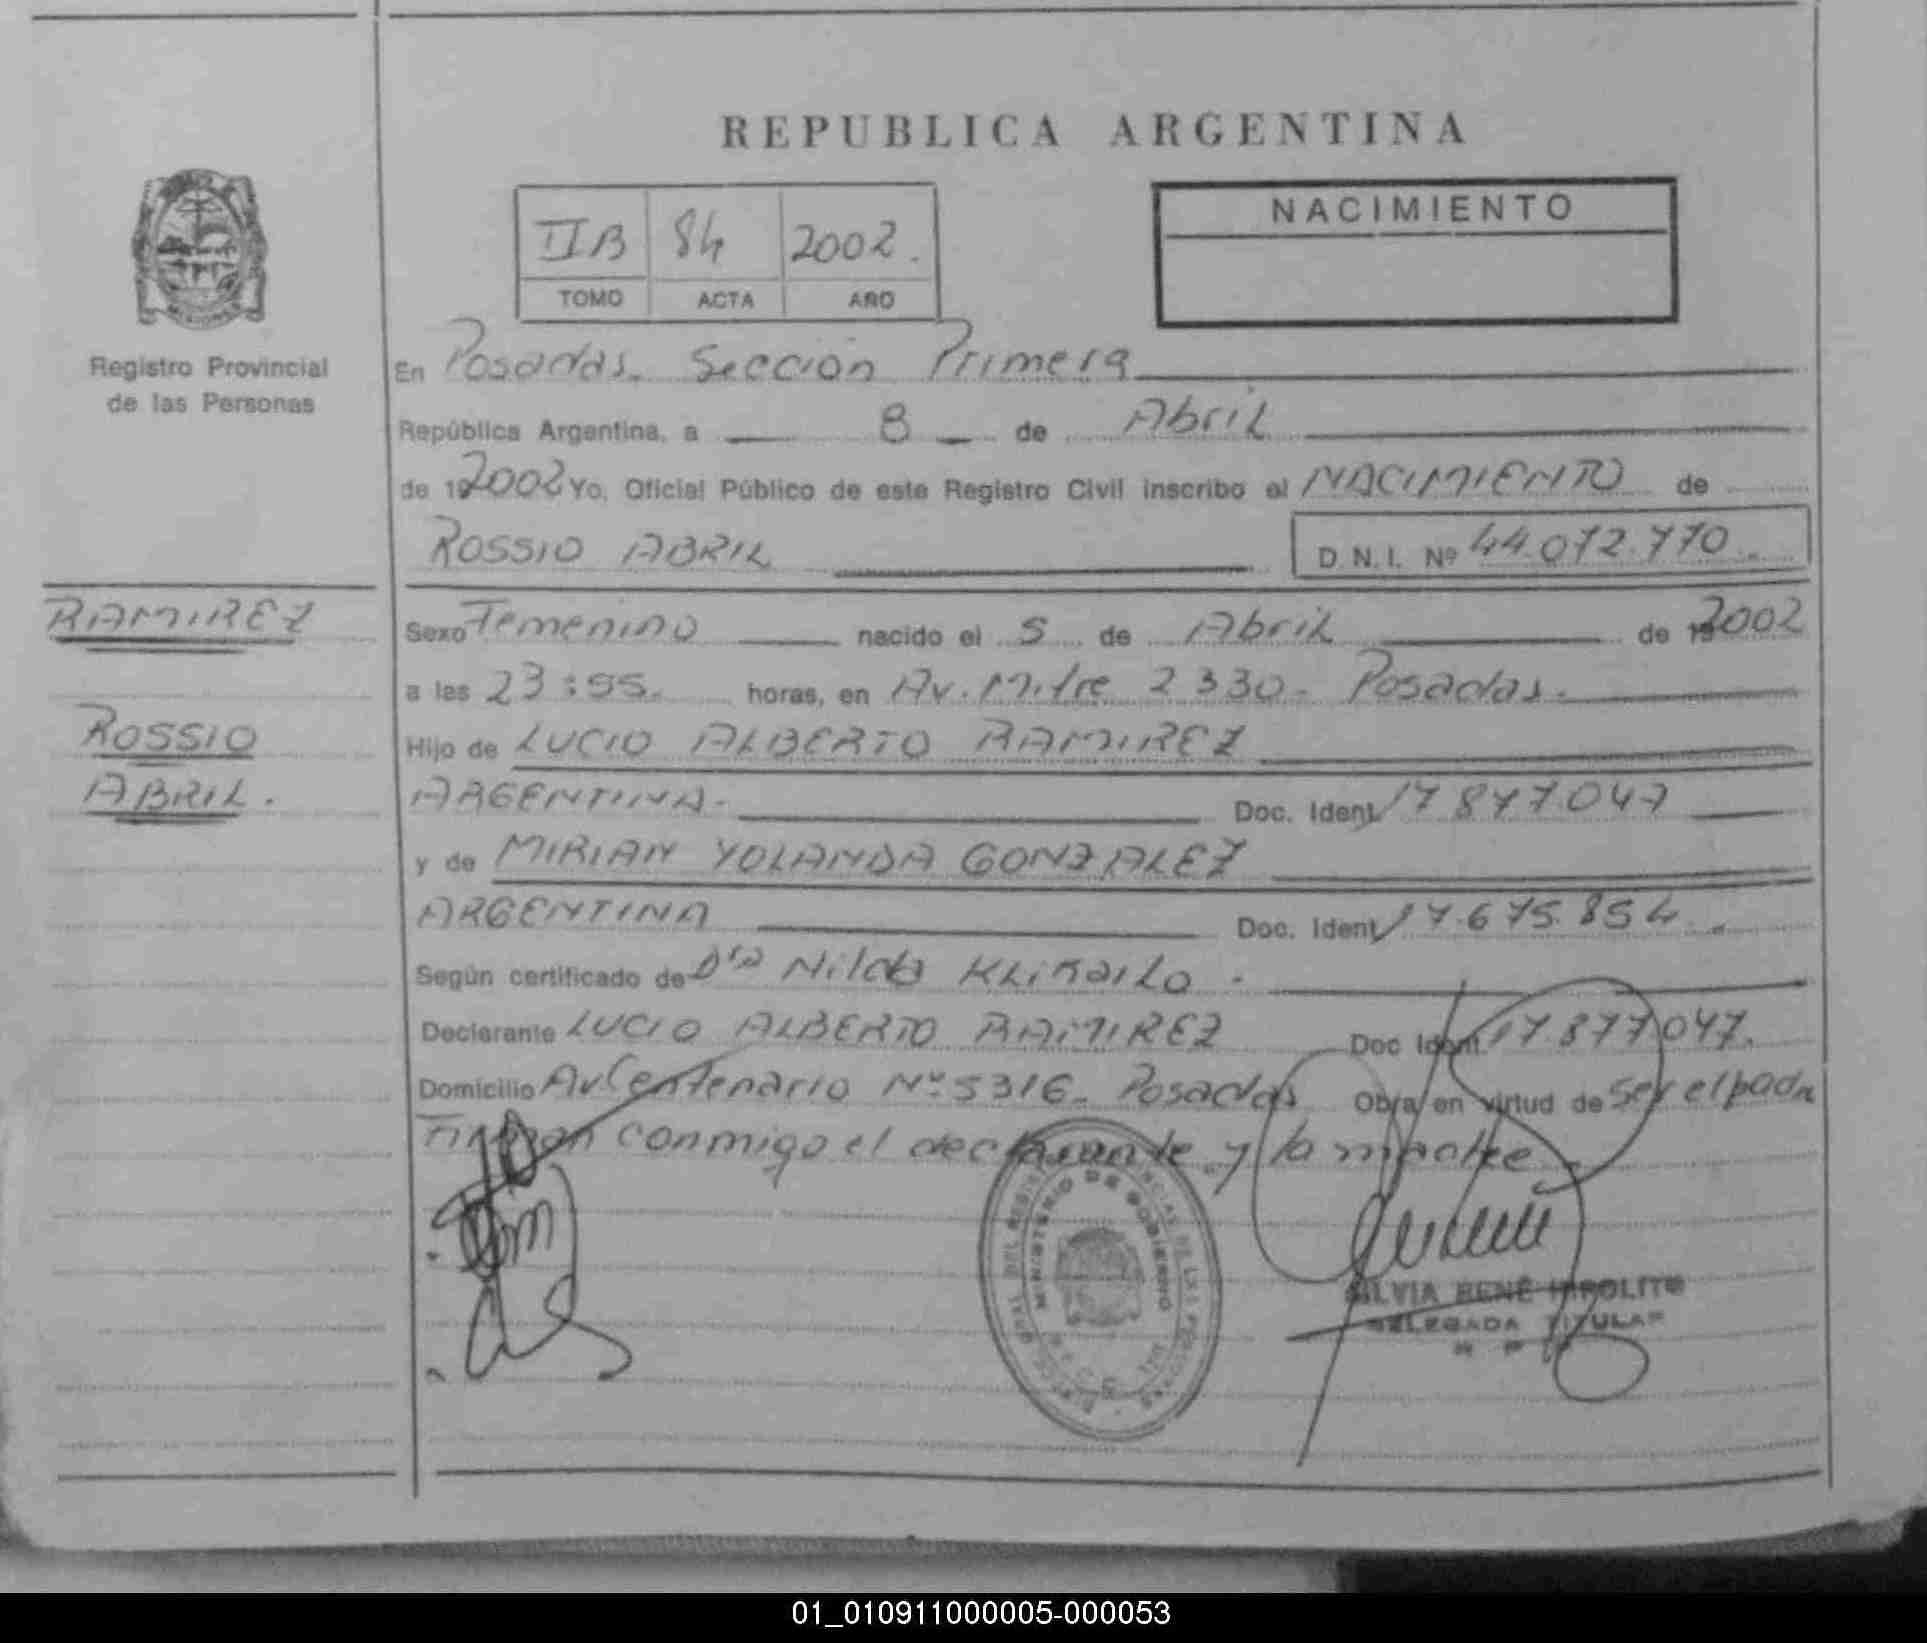 REPUBLICA ARGENTINA
NACIMIENTO
IIB 84 2002.
TOMO ACTA AÑO
Registro Provincial
de las Personas
En Posadas. Sección Primera
República Argentina, a 8 de Abril
de 192002 Yo, Oficial Público de este Registro Civil inscribo el NACIMIENTO de
ROSSIO ABRIL D.N.I. Nº 44.072.770
RAMIREZ
ROSSIO
ABRIL.
Sexo Femenino nacido el 5 de Abril de 192002
a las 23:55. horas, en Av. Mitre 2330. Posadas.
Hijo de LUCIO ALBERTO RAMIREZ
ARGENTINA. Doc. Ident. 17.877.047
y de MIRIAN YOLANDA GONZALEZ
ARGENTINA Doc. Ident. 17.675.854.
Según certificado de Dra Nilda
Declarante LUCIO ALBERTO RAMIREZ Doc Ident. 17.877.047.
Domicilio Av Centenario Nº 5316. Posadas Obra en virtud de ser el padre
Firman conmigo el declarante y la madre.
MINISTERIO DE GOBIERNO
SILVIA RENÉ HIPOLITO
DELEGADA TITULAR
01_010911000005-000053